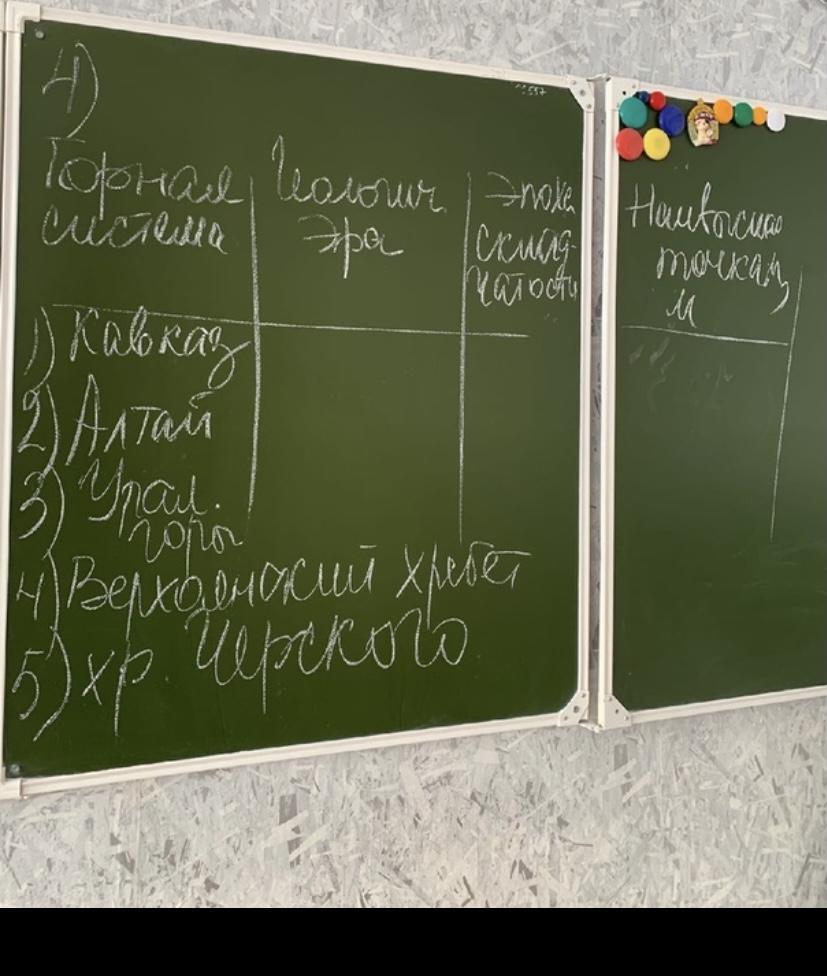 4)
Горная
система
Геологич.
Эра
Эпоха
склад-
чатости
Наивысшая
точка,
м
1) Кавказ
2) Алтай
3) Урал.
горы
4) Верхоянский хребет
5) хр Черского